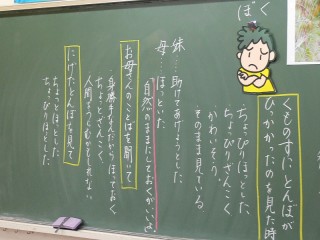 ぼく
くものすに、とんぼが
ひっかかったのを見た時
ちょっぴりほっとした
ちょっぴりざんこく
かわいそう。
そのまま見ている
妹…助けてあげようとした
母…ほっといた
自然のままにしておくがいいよ。
お母さんのことばを聞いて
身勝手なんだからほっておく
ちょっとざんこく
にげたとんぼを見て
ちょっとほっとした
ちょっぴりほっとした。